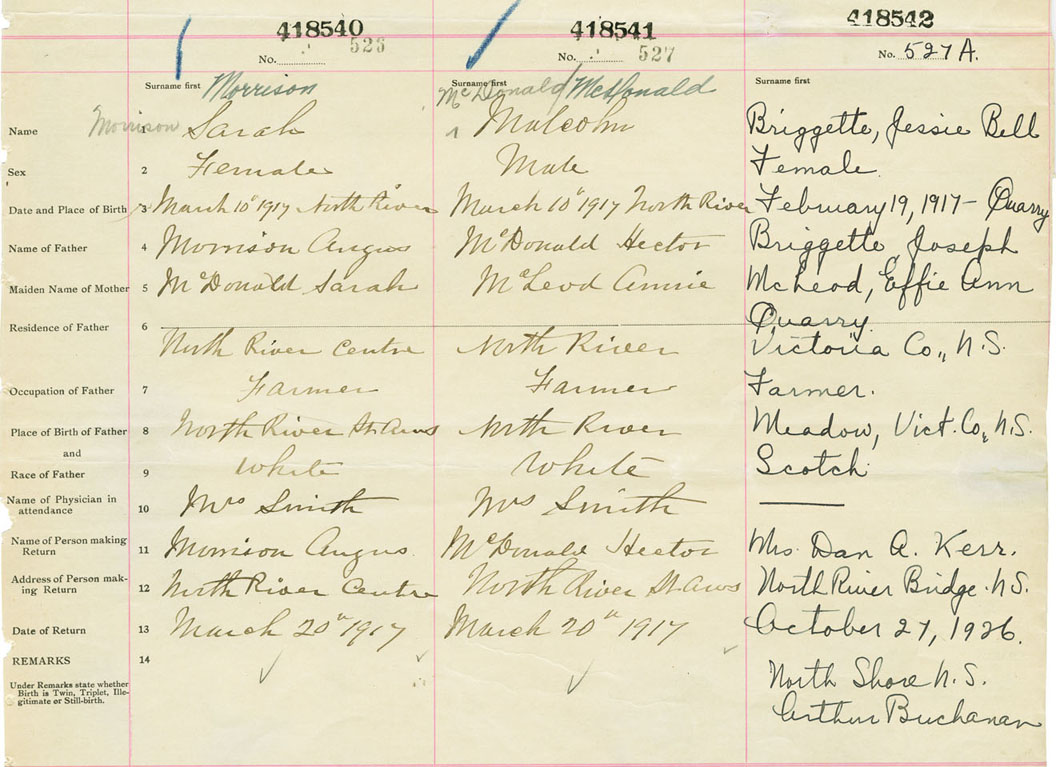 418540 418541 418542
No. 526 No. 527 No. 527 A.
Surname first Morrison Surname first McDonald/McDonald Surname first
Name 1 Morrison Sarah Malcolm Briggette, Jessie Bell
Sex 2 Female Male Female.
Date and Place of Birth 3 March 10" 1917 North River March 10" 1917 North River February 19, 1917 - Quarry
Name of Father 4 Morrison Angus McDonald Hector Briggette, Joseph
Maiden Name of Mother 5 McDonald Sarah McLeod Annie McLeod, Effie Ann
Residence of Father 6 Quarry
North River Centre North River Victoria Co., N.S.
Occupation of Father 7 Farmer Farmer Farmer.
Place of Birth of Father 8 North River St. Anns North River Meadow, Vict. Co., N.S.
and
Race of Father 9 White White Scotch
Name of Physician in
attendance 10 Mrs Smith Mrs Smith
Name of Person making
Return 11 Morrison Angus. McDonald Hector Mrs. Dan A. Kerr.
Address of Person mak-
ing Return 12 North River Centre North River St Anns North River Bridge. N.S.
Date of Return 13 March 20" 1917 March 20" 1917 October 27, 1926.
REMARKS 14
Under Remarks state whether
Birth is Twin, Triplet, Ille-
gitimate or Still-birth.
North Shore N.S.
Arthur Buchanan